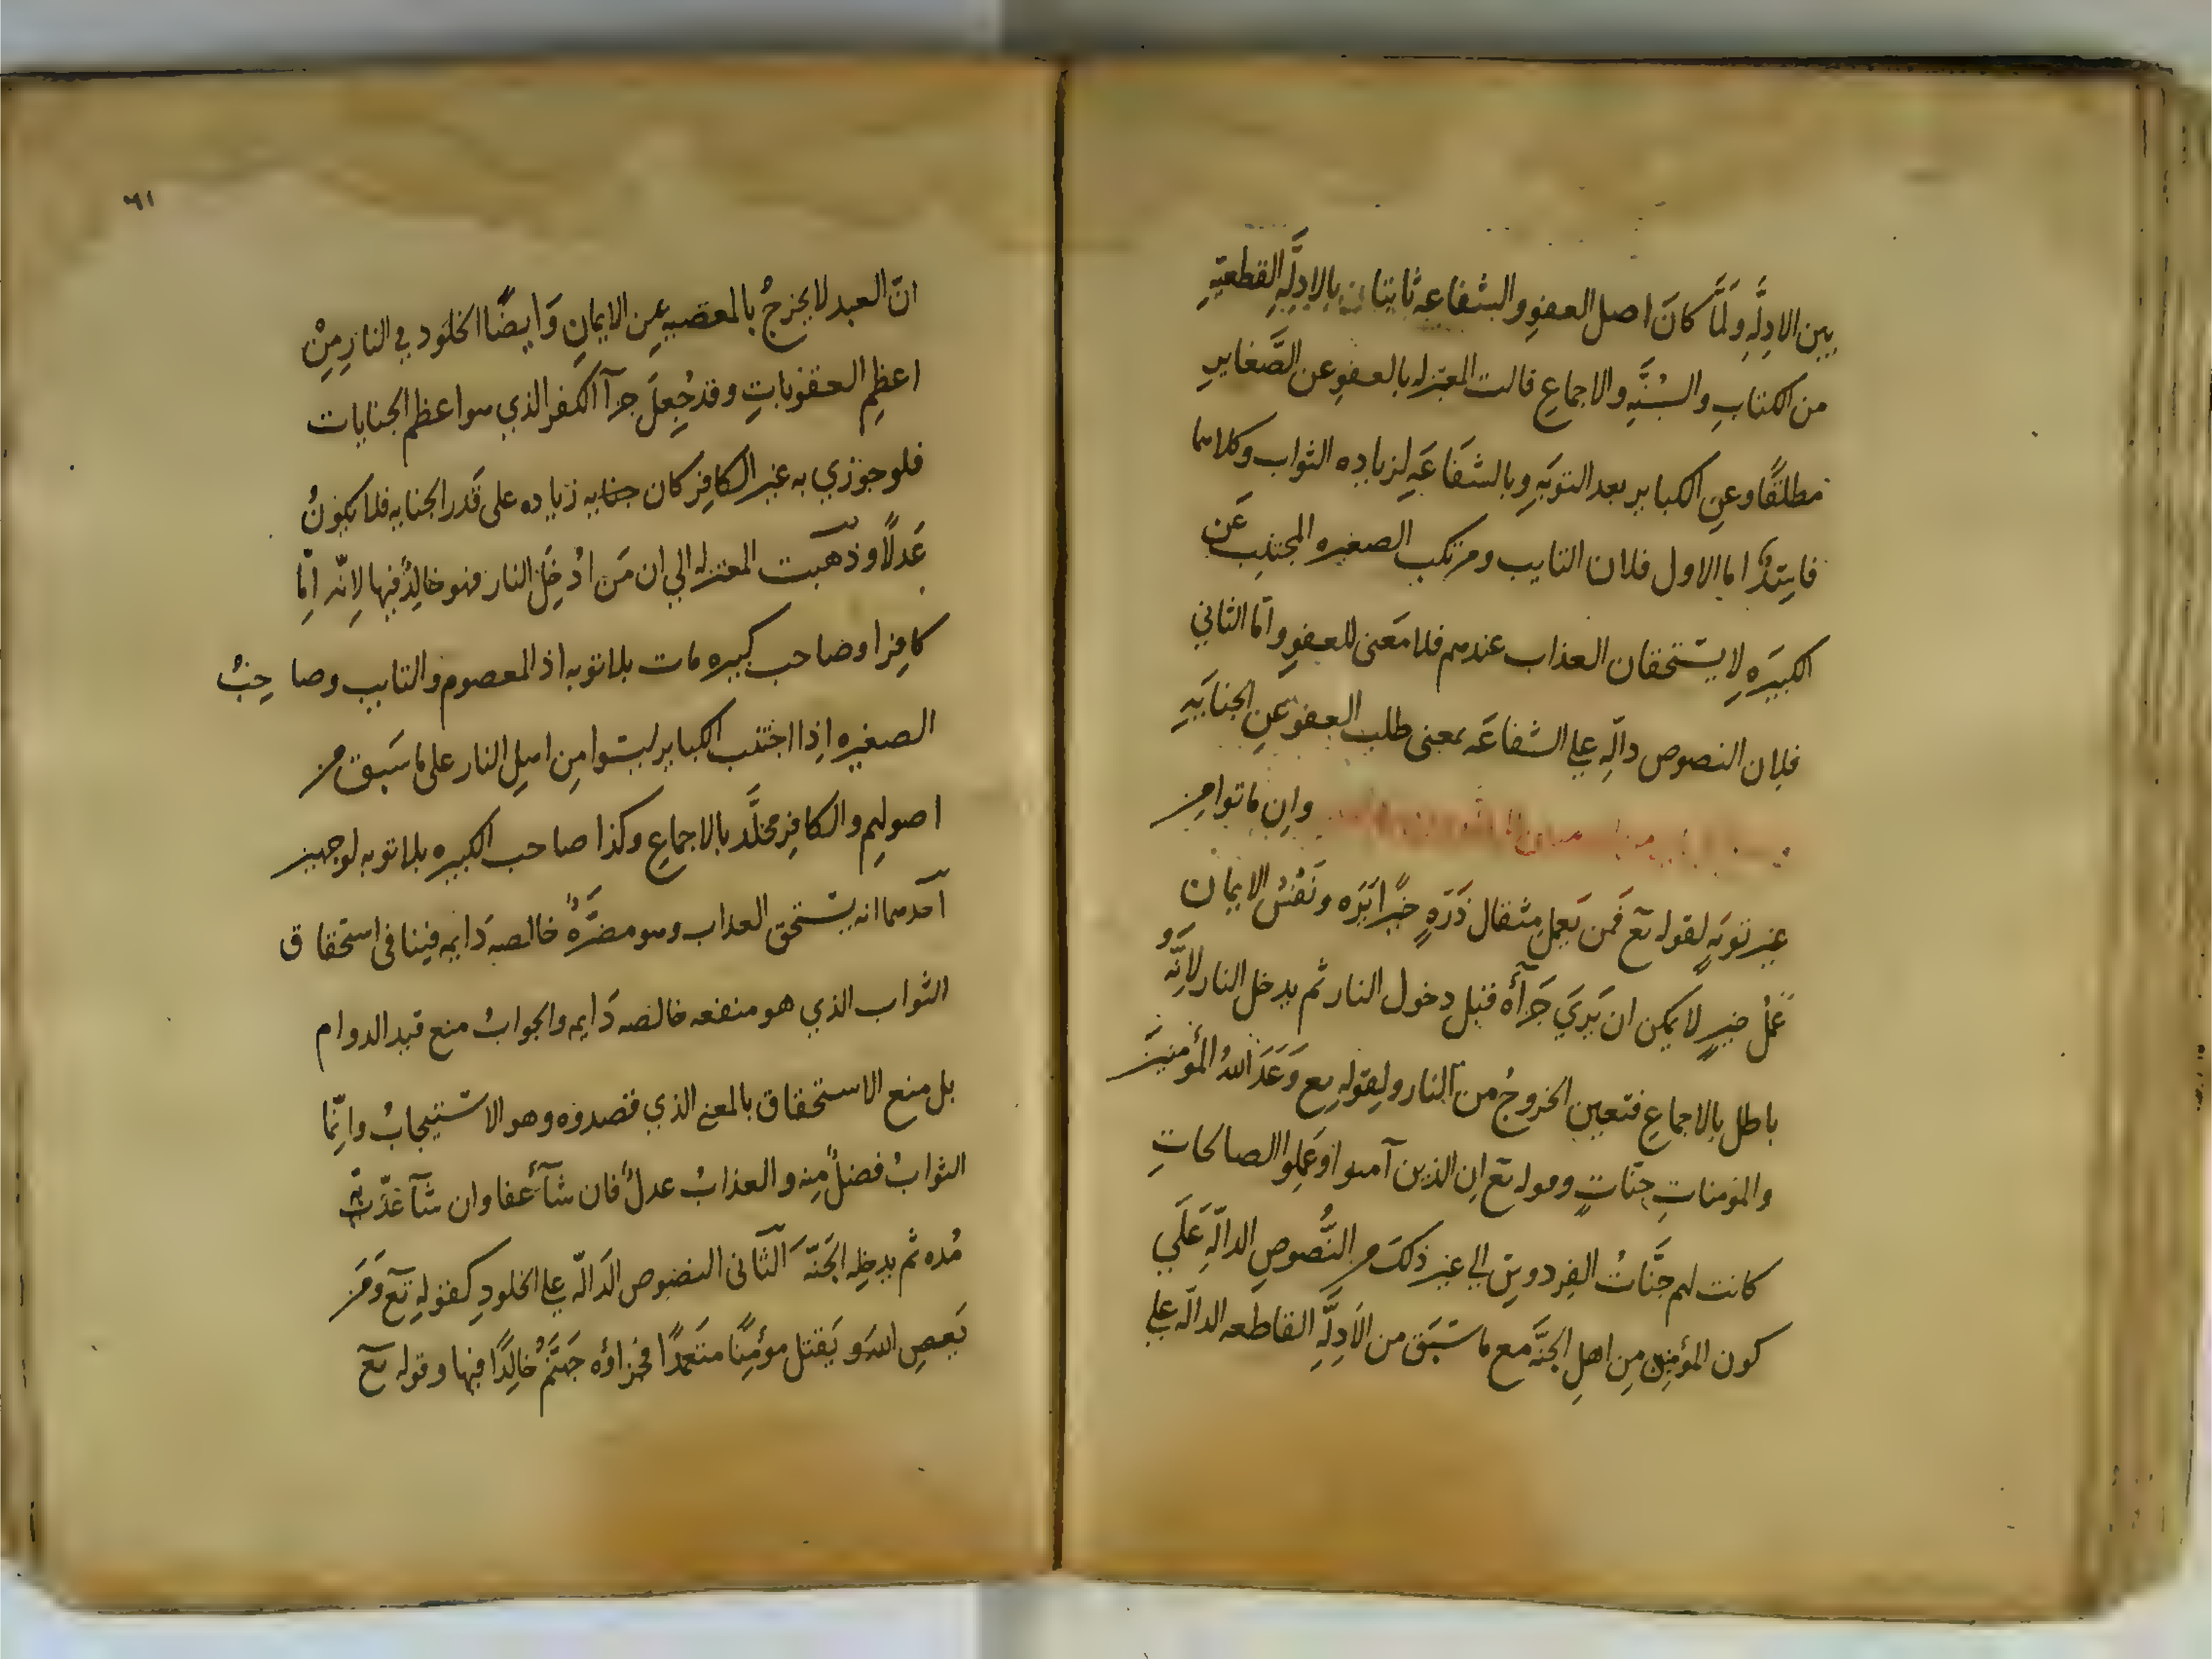 بين الادلَّهِ ولَمَّا كانَ اصل العفوِ والشفاعه ثابتان بالادلَّهِ القطعيّهِ
من الكتابِ والسُّنَّهِ والاجماعِ قالت المعتزله بالعفوِ عن الصَّغايرِ
مطلقًا وعنِ الكبايرِ بعد التوبَهِ وبالشفَاعَهِ لزياده الثواب وكلاهما
فاسِدٌ اما الاول فلان التايب ومرتكب الصغيره المجتنِب عَن
الكبيرَه لا يستحقان العذاب عندهم فلا معَنى للعفوِ وامّا الثاني
فلان النصوص دالّه علي الشفاعَه بمعنى طلب العفوِ عنِ الجنايَهِ
وان ماتوا من
غير توبَهٍ لقوله تع فَمن يَعمل مثقال ذَرّهٍ خيًرا يَرَه ونَفْسُ الايمان
عَمَلُ خيرٍ لا يمكن ان يَريَ جَزآءَه قبل دخول النار ثم يدخل النار لانَّه
باطل بالاجماعِ فتعين الخروجُ من النار ولقولهِ تع وَعَدَ اللهُ المؤمنينَ
والمؤمناتِ جنّاتٍ وقوله تع ان الذين آمنوا وعَملِوا الصالحاتِ
كانت لهم جَنَّاتُ الفِردوسِ الي غير ذلك من النُّصوصِ الدالّهِ عَلَي
كون المؤمنِين مِن اهلِ الجنَّه مع ما سَبَق من الاَدِلَّهِ القاطعه الدالّه علي
٦١
انّ العبد لا يخرجُ بالمعصيهِ عنِ الايمانِ وَايضًا الخلود في النارِ مِنْ
اعظمِ العقوباتِ وقد جُعِلَ جزآ الكفر الذي هو اعظم الجنايات
فلو جوزي به غير الكافِر كان جنايه زياده على قَدر الجنايه فلا يكونُ
عَدلًا وذهبت المعتزله الي ان مَن ادُخِلَ النار فهو خالِدٌ فيها لانّه اِمّا
كافِر اوصاحب كبيره مات بلا توبه اذ المعصوم والتايب وصاحِبُ
الصغيره اِذا اجتنب الكباير ليسُوا مِن اهلِ النار على ما سَبق من
اصولهم والكافِر مخلَّد بالاجماعِ وكذا صاحب الكبيره بلا توبه لوجهين
اَحدهما انه يستحق العذاب وهو مضَرَّهٌ خالصه دَايمه فينافي استحقاق
الثواب الذي هو منفعه خالصه دَايمه والجوابُ منع قيد الدوام
بل منع الاستحقاق بالمعني الذي قصدوه وهو الاستيجابُ وانّما
الثوابُ فضلٌ مِنه والعذابُ عدلٌ فان شآءَ عفا وان شآ عَذّبَه
مُده ثم يدخِله الجَنّهَ الثّانى النصوص الدَالّه علي الخلودِ كقولهِ تع وَمَن
يَعصِ اللهَ و يَقتل مؤمِنًا متَعمدًا فجزاؤه جَهنّمُ خالِدًا فيها وقوله تع